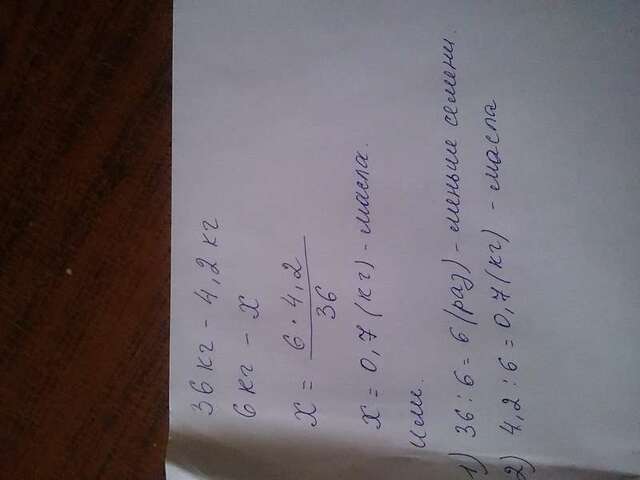 36 кг - 4,2 кг
6 кг - x
x = 6 · 4,2 / 36
x = 0,7 (кг) - масла.
Или.
1) 36 : 6 = 6 (раз) - меньше семени.
2) 4,2 : 6 = 0,7 (кг) - масла